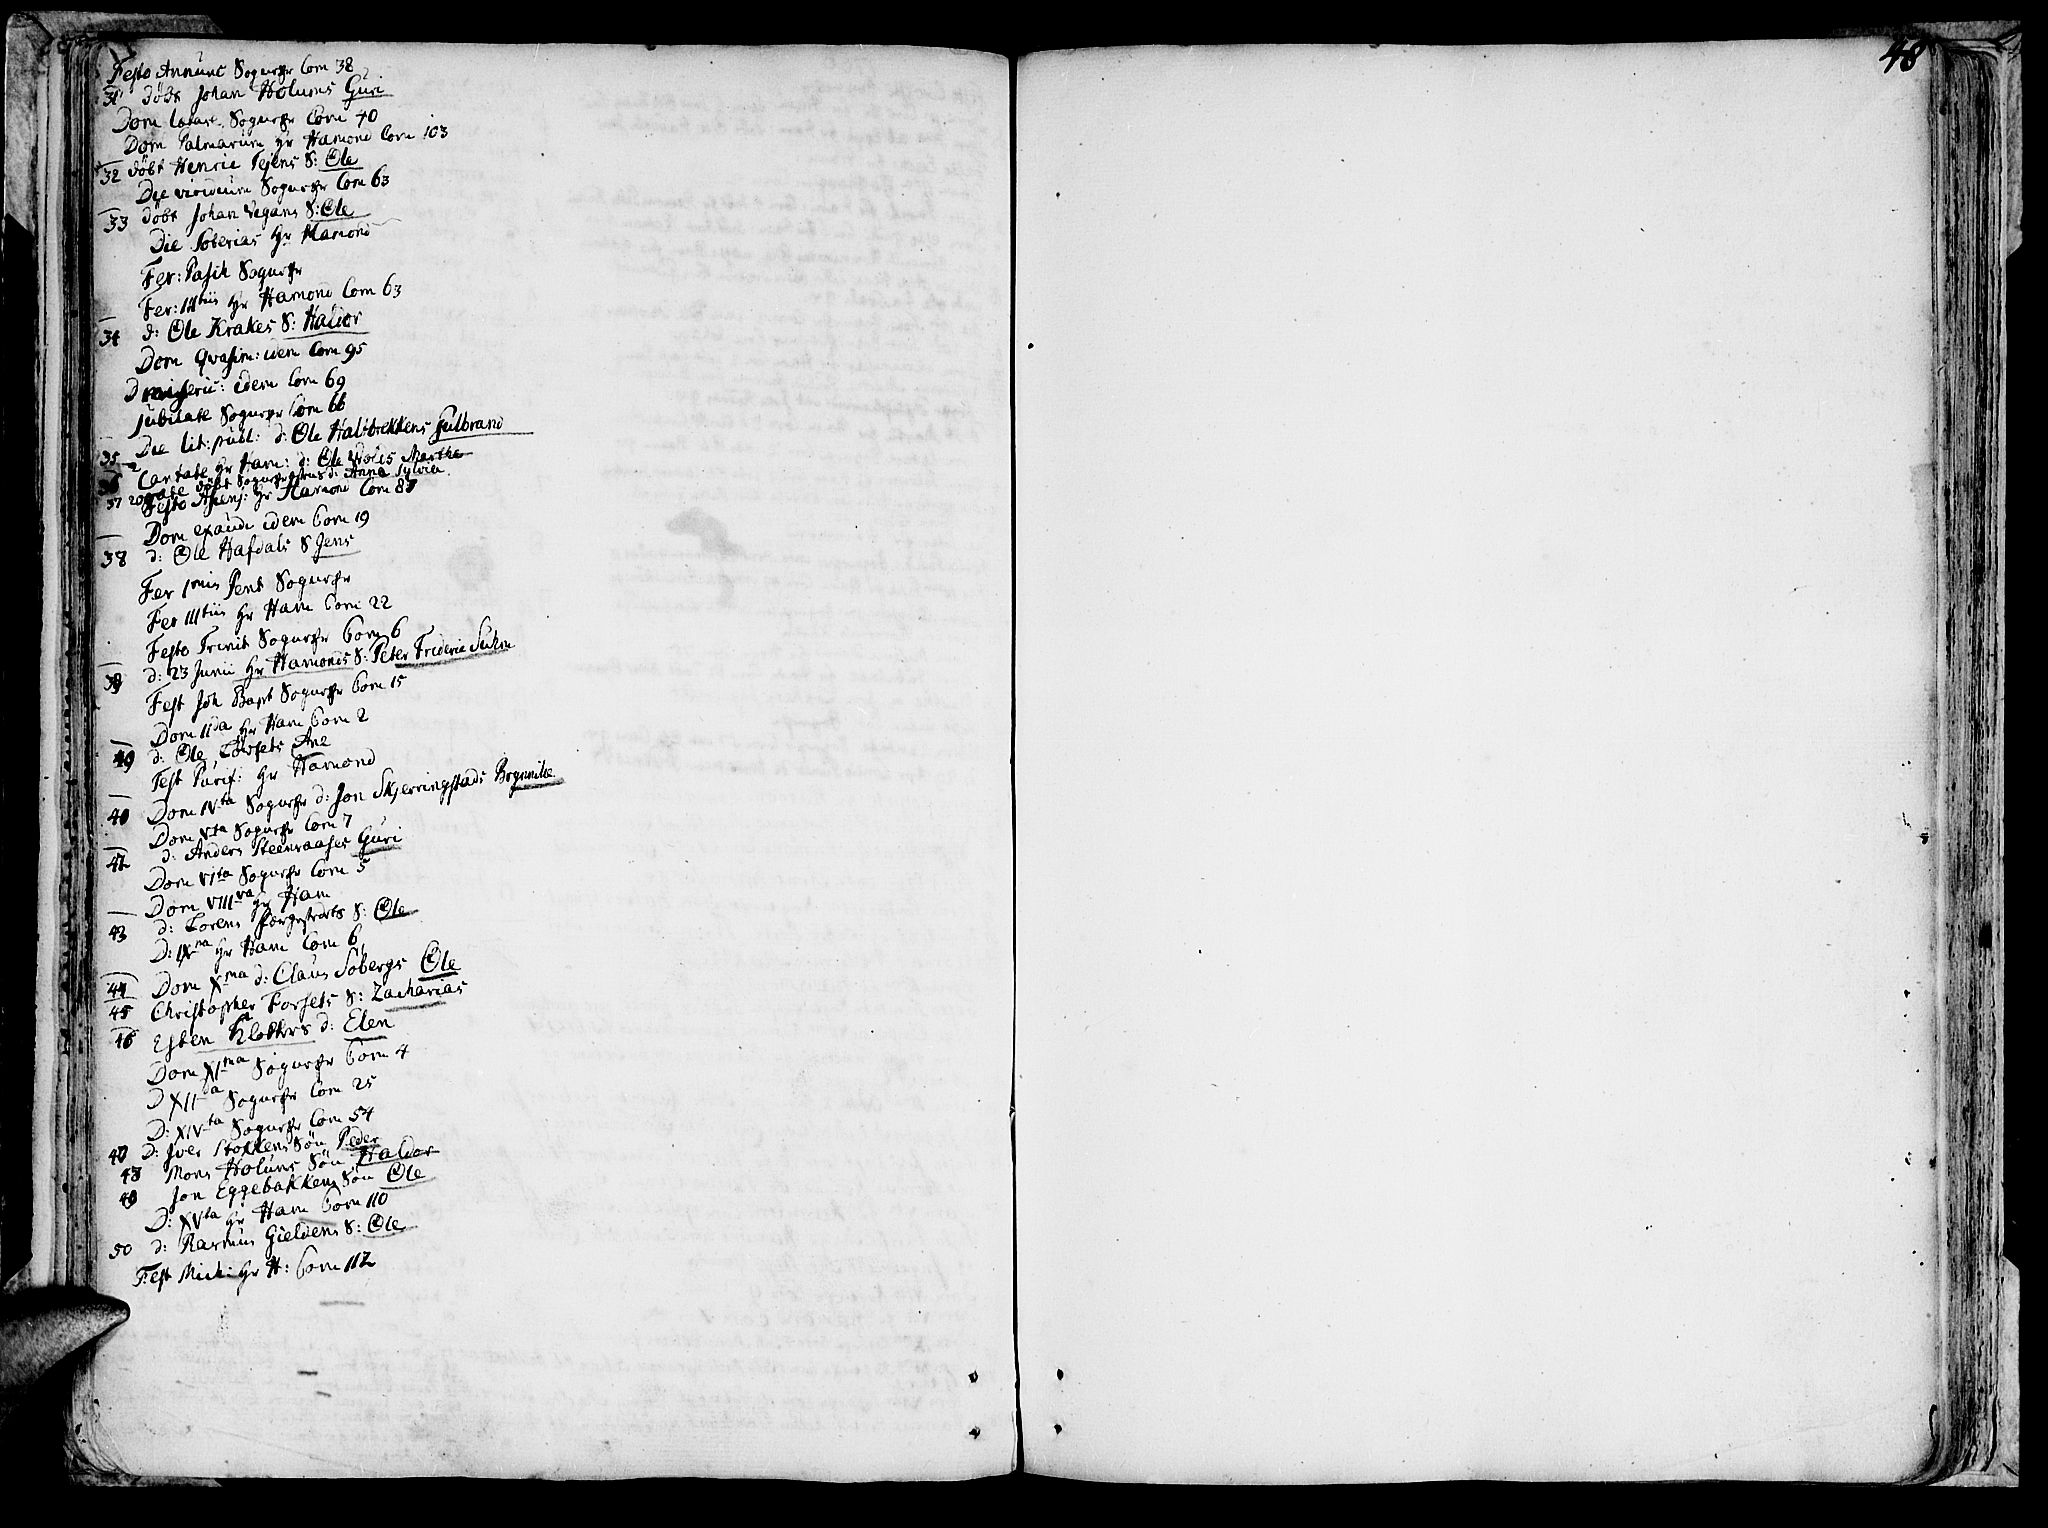 Festo Annunc Sognepr Com 38
31 döbt Johan Holums Guri
Dom Lætare Sognepr Com 40
Dom Palmarum Hr Hamond Com 103
32 döbt Henric Tejens S: Ole
Die viridium Sognepr Com 63
33 döbt Johan Vegans S: Ole
Die Hr Hamond
Fer: Pasch Sognepr
Fer: IIItiis Hr Hamond Com 63
34 d: Ole Krakes S: Haldor
Dom Qvasim: idem Com 95
D miseric: idem Com 69
Jubilate Sognepr Com 66
35 Die lit: publ: d: Ole Halsbekkens Gulbrand
36 Cantate Hr Ham: d: Ole Marthe
37 rogate döbt Sognepræstens d: Anna Sylvia
Festo Ascens: Hr Hamond Com 87
Dom exaudi idem Com 19
38 d: Ole Hafdals S Jens
Fer Imis Pent Sognepr
Fer IIItiis Hr Ham Com 22
Festo Trinit Sognepr Com 6
39 d: 23 Junii Hr Hamonds S: Peter Frideric Suhm
Fest Joh Bapt Sognepr Com 15
Dom IIda Hr Ham Com 2
40 d: Ole Torsets Ane
Fest Purif: Hr Hamond
40 Dom IVta Sognepr d: Jon Skjerringstads Bognille
Dom Vta Sognepr Com 7
42 d: Anders Steensaases Guri
Dom VIta Sognepr Com 5
Dom VIIIva Hr Ham
43 d: Lorens S: Ole
D: IXna Hr Ham Com 6
44 Dom Xma d: Claus Sobergs Ole
45 Christopher Forsets S: Zacharias
46 Esten Klokkers d: Elen
Dom XIma Sognepr Com 4
D XIIda Sognepr Com 25
D: XIVta Sognepr Com 54
47 d: Iver Stokkens Søn Peder
48 Mons Holums Søn Haldor
49 Jon Eggebakkens Søn Ole
D: XVta Hr Ham Com 110
50 d: Rasmus Gieldens S: Ole
Fest Mich: Hr H: Com 112
48